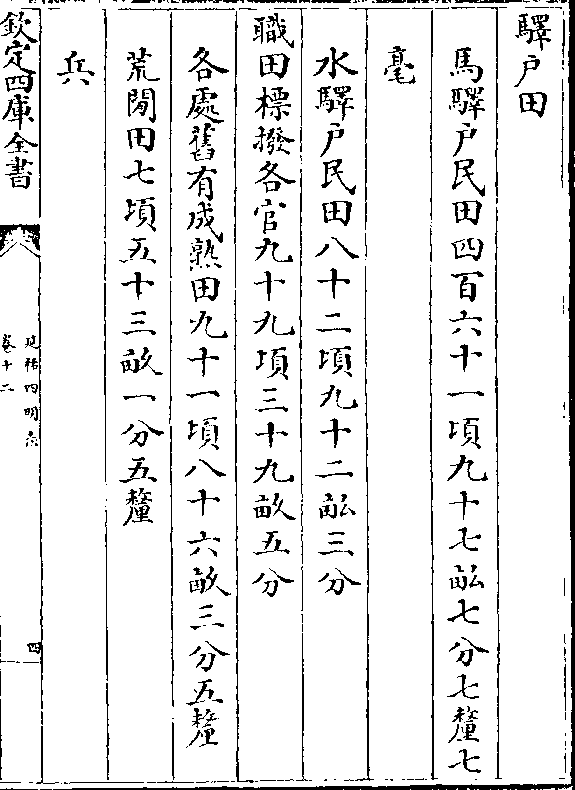 驛户田
馬驛户民田四百六十一頃九十七畝七分七釐七
毫
水驛户民田八十二頃九十二畝三分
職田標撥各官九十九頃三十九畝五分
各處舊有成熟田九十一頃八十六畝三分五釐
荒閒田七頃五十三畝一分五釐
兵
欽定四庫全書
延祐四明志
卷十二
四